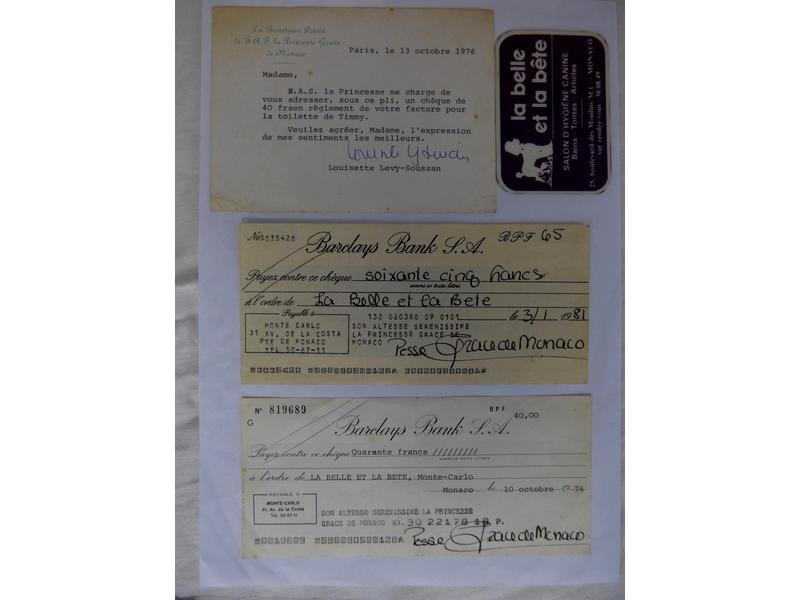 La Secrétaire Privée
de S.A.S. la Princesse Grace
de Monaco
Paris, le 13 octobre 1976
Madame,
S.A.S. la Princesse me charge de
vous adresser, sous ce pli, un chèque de
40 frsen règlement de votre facture pour
la toilette de Timmy.
Veuilez agréer, Madame, l'expression
de mes sentiments les meilleurs.
Louisette Levy-Soussan
la belle
et la bête
SALON D'HYGIÈNE CANINE
Bains - Tontes - Articles
25, boulevard des Moulins M.C. - MONACO
sur rendez-vous
No 3035420
Barclays Bank S.A.
B.P.F 65
Payez contre ce chèque soixante cinq francs
somme en toutes lettres
à l'ordre de La Belle et la Bete
Payable à
130 020360 09 0101
le 3/1 1981
MONTE CARLO
31 AV. DE LA COSTA
PTE DE MONACO
TEL 50-67-11
SON ALTESSE SERENISSIME
LA PRINCESSE GRACE DE
MONACO
Psse Grace de Monaco
N° 819689
G
Barclays Bank S.A.
B.P.F. 40,00
Payez contre ce chèque Quarante francs //////////
à l'ordre de LA BELLE ET LA BETE, Monte-Carlo
Monaco le 10 octobre 1976
PAYABLE A
MONTE-CARLO
31, Av. de la Costa
SON ALTESSE SERENISSIME LA PRINCESSE
GRACE DE MONACO NO. 30 22178 18 P.
Psse Grace de Monaco